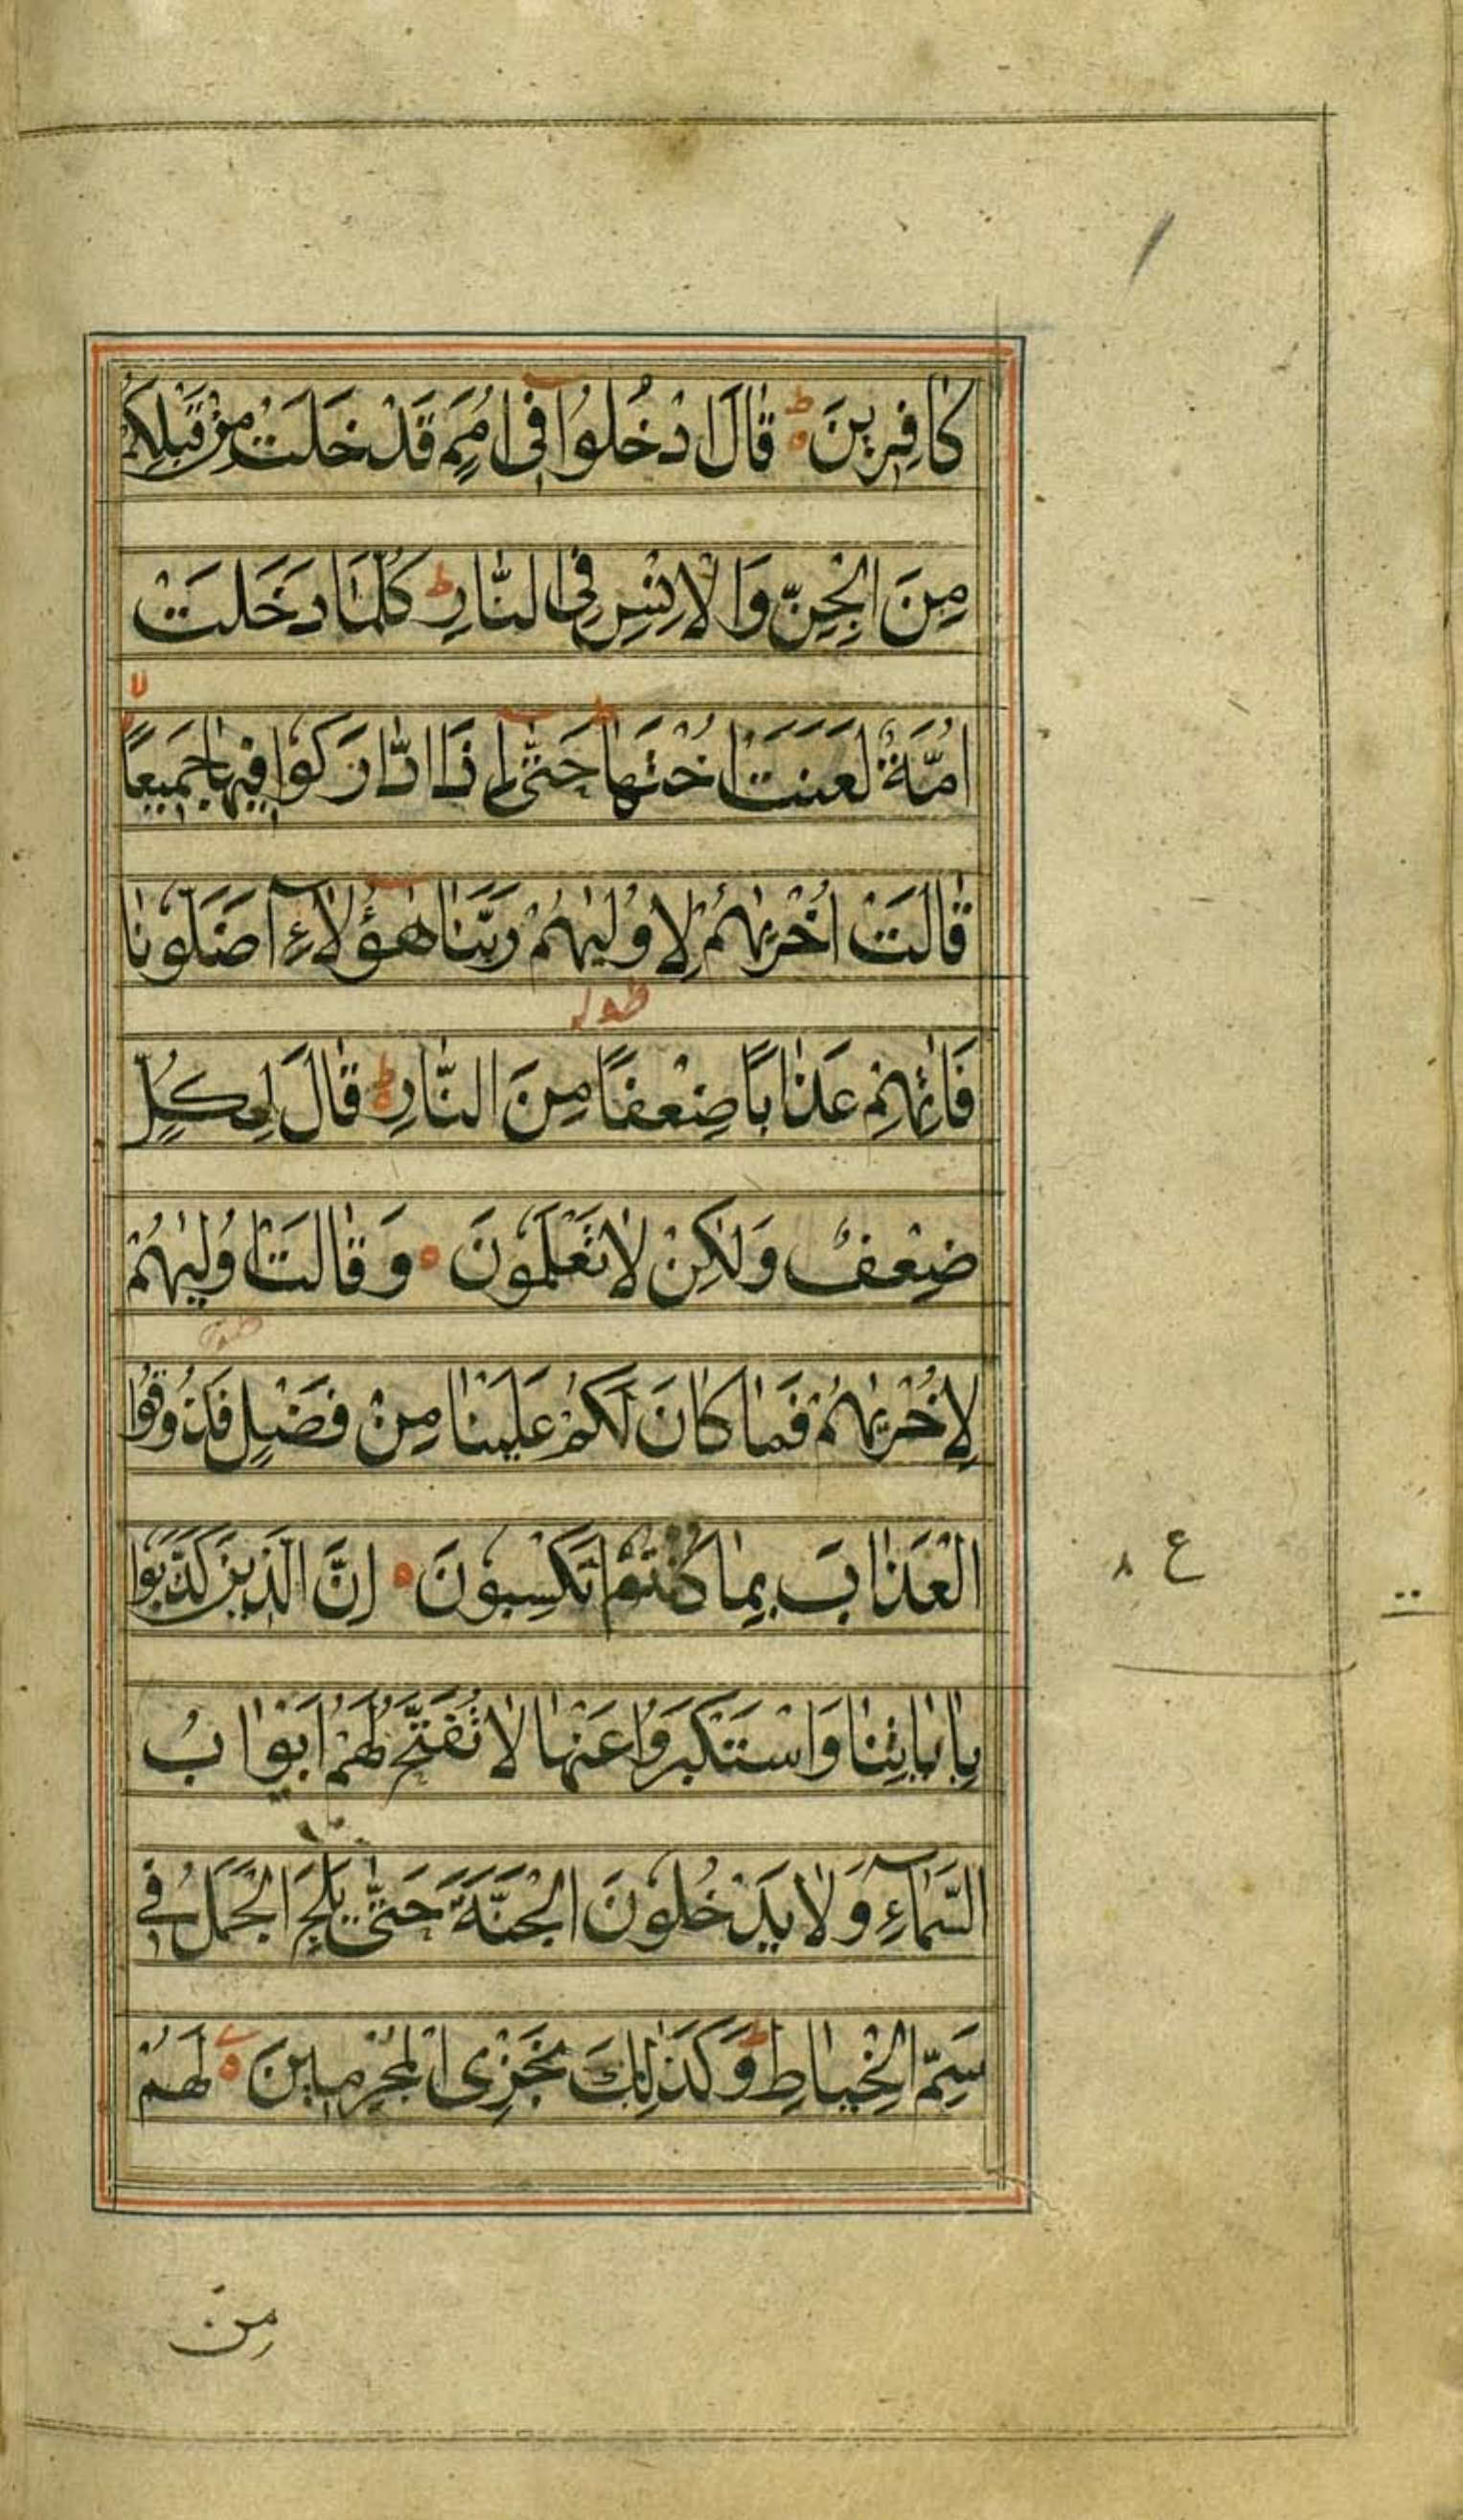 كافِرينَ قالَ ادْخُلُوا في اُمَمٍ قَدْ خَلَتْ مِنْ قَبْلِكُمْ
مِنَ الْجِنِّ وَالْاِنْسِ فِي النَّارِ كُلَّمَا دَخَلَتْ
اُمَّةٌ لَعَنَتْ اُخْتَها حَتّٰى اِذَا ادّٰارَكُوا فيها جَميعًا
قالَتْ اُخْرٰيهُمْ لِاُولٰيهُمْ رَبَّنا هٰؤُلاءِ اَضَلُّونا
فَاٰتِهِمْ عَذابًا ضِعْفًا مِنَ النَّارِ قالَ لِكُلٍّ
ضِعْفٌ وَلٰكِنْ لا تَعْلَمُونَ وَقالَتْ اُولٰيهُمْ
لِاُخْرٰيهُمْ فَما كانَ لَكُمْ عَلَيْنا مِنْ فَضْلٍ فَذُوقُوا
الْعَذابَ بِما كُنْتُمْ تَكْسِبُونَ اِنَّ الَّذينَ كَذَّبُوا
ع ٨
بِاٰياتِنا وَاسْتَكْبَرُوا عَنْها لا تُفَتَّحُ لَهُمْ اَبْوابُ
السَّماءِ وَلا يَدْخُلُونَ الْجَنَّةَ حَتّٰى يَلِجَ الْجَمَلُ في
سَمِّ الْخِياطِ وَكَذٰلِكَ نَجْزِى الْمُجْرِمينَ لَهُمْ
مِنْ